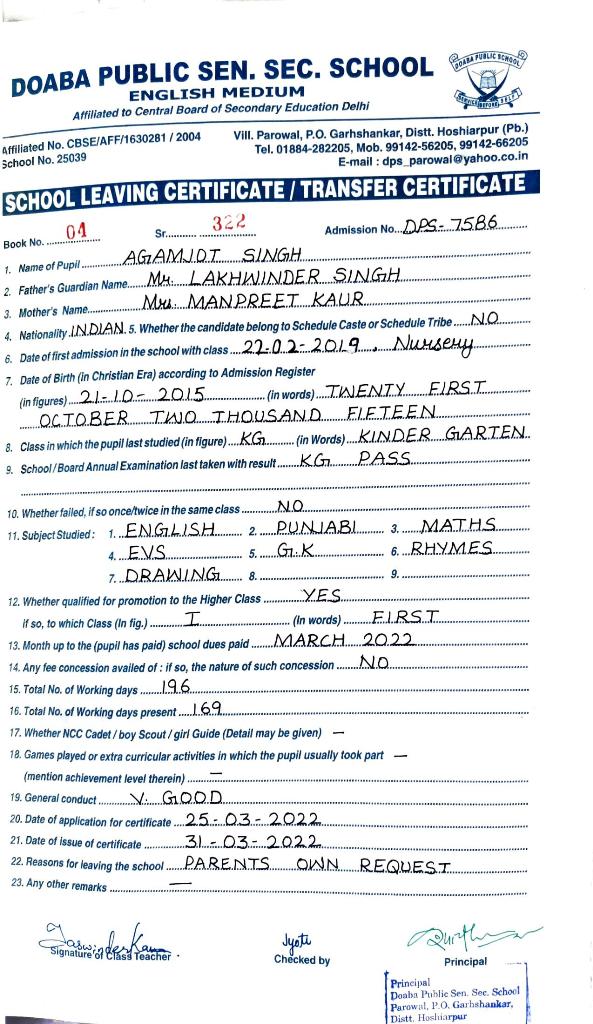 DOABA PUBLIC SEN. SEC. SCHOOL
ENGLISH MEDIUM
Affiliated to Central Board of Secondary Education Delhi
DOABA PUBLIC SCHOOL
Affiliated No. CBSE/AFF/1630281 / 2004
School No. 25039
Vill. Parowal, P.O. Garhshankar, Distt. Hoshiarpur (Pb.)
Tel. 01884-282205, Mob. 99142-56205, 99142-66205
E-mail : dps_parowal@yahoo.co.in
SCHOOL LEAVING CERTIFICATE / TRANSFER CERTIFICATE
Book No. 04 Sr. 322 Admission No. DPS-7586
1. Name of Pupil AGAMJOT SINGH
2. Father's Guardian Name Mr. LAKHWINDER SINGH
3. Mother's Name Mrs. MANPREET KAUR
4. Nationality INDIAN 5. Whether the candidate belong to Schedule Caste or Schedule Tribe NO
6. Date of first admission in the school with class 22-02-2019, Nursery
7. Date of Birth (in Christian Era) according to Admission Register
(in figures) 21-10-2015 (in words) TWENTY FIRST
OCTOBER TWO THOUSAND FIFTEEN
8. Class in which the pupil last studied (in figure) KG (in Words) KINDER GARTEN
9. School / Board Annual Examination last taken with result KG PASS
10. Whether failed, if so once/twice in the same class NO
11. Subject Studied : 1. ENGLISH 2. PUNJABI 3. MATHS
4. EVS 5. G.K 6. RHYMES
7. DRAWING 8. 9.
12. Whether qualified for promotion to the Higher Class YES
if so, to which Class (In fig.) I (In words) FIRST
13. Month up to the (pupil has paid) school dues paid MARCH 2022
14. Any fee concession availed of : if so, the nature of such concession NO
15. Total No. of Working days 196
16. Total No. of Working days present 169
17. Whether NCC Cadet / boy Scout / girl Guide (Detail may be given) —
18. Games played or extra curricular activities in which the pupil usually took part —
(mention achievement level therein) —
19. General conduct V. GOOD
20. Date of application for certificate 25-03-2022
21. Date of issue of certificate 31-03-2022
22. Reasons for leaving the school PARENTS OWN REQUEST
23. Any other remarks —
Jaswinder Kaur Jyoti
Signature of Class Teacher Checked by Principal
Principal
Doaba Public Sen. Sec. School
Parowal, P.O. Garhshankar,
Distt. Hoshiarpur